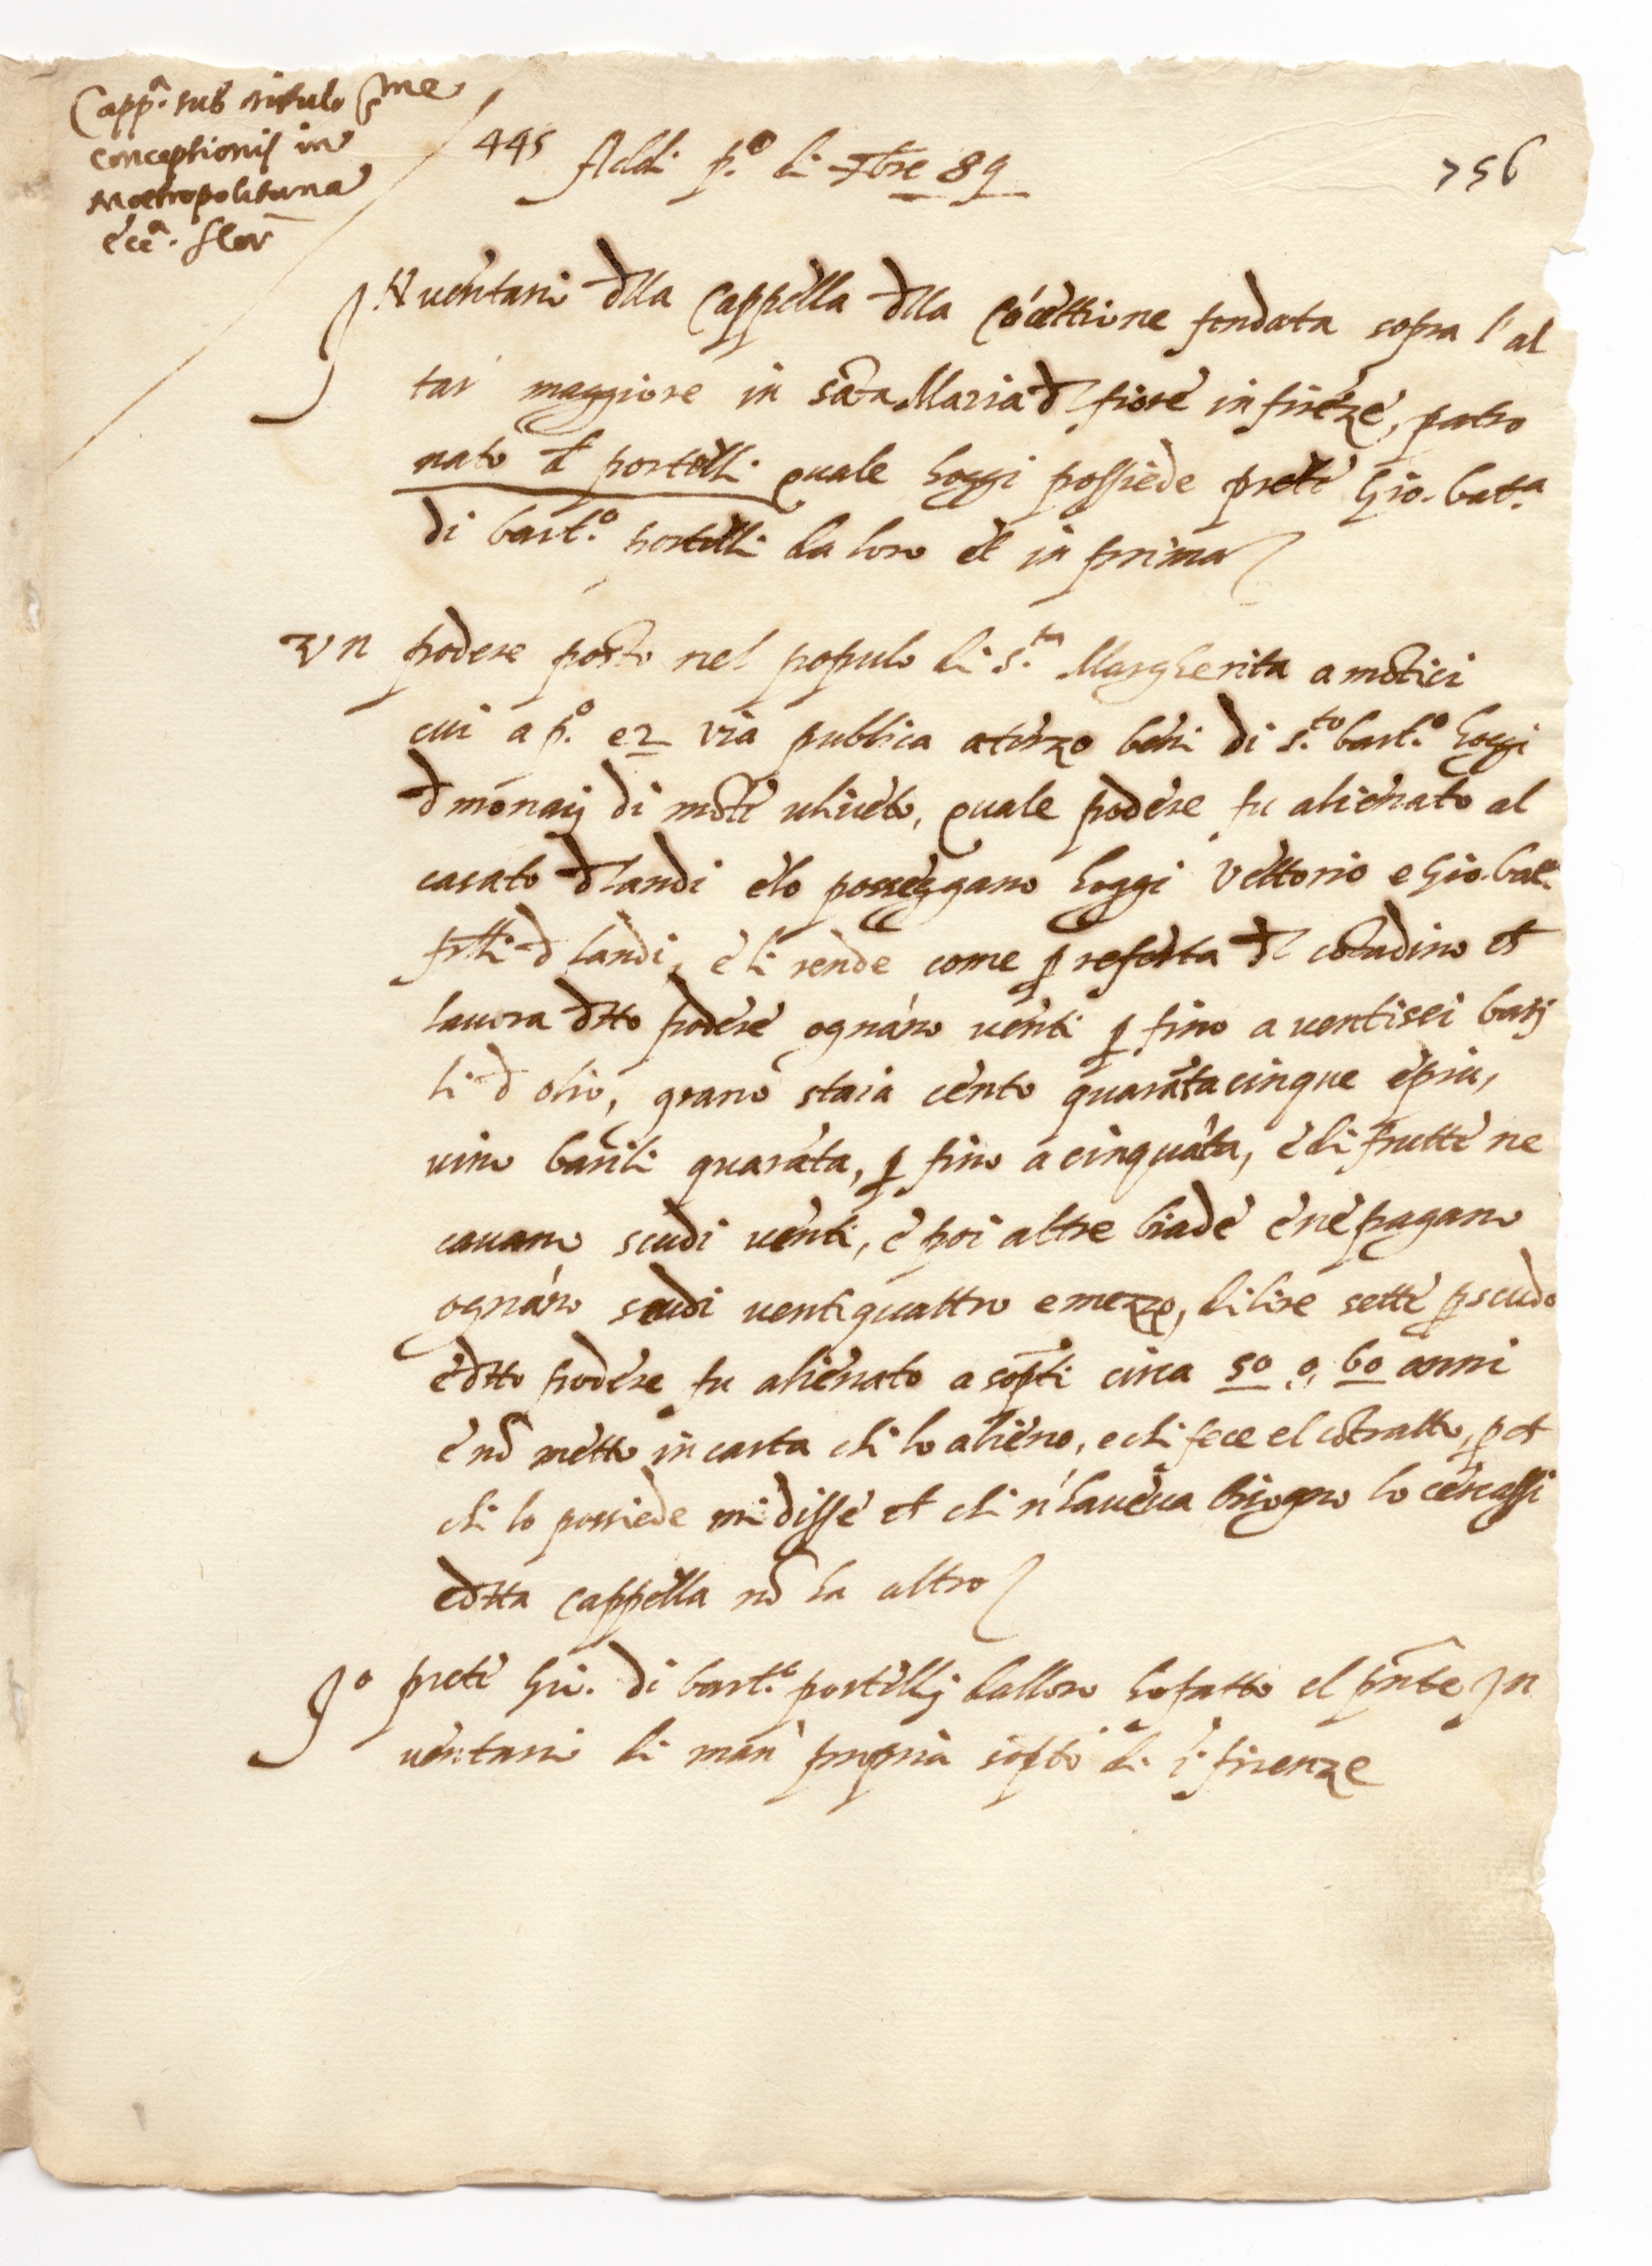 Capp.ª sub titulo S.me
Conceptionis in
Metropolitana
ecc.ª flor.
445 Addi p.º di 7bre 89
756
INventario dlla Cappella dlla Cōcettione fondata sopra l'al
tar maggiore in sāta Maria dl fiore in firēze, patro
nato d portelli quale hoggi possiede prete Gio. bat.ª
di bart.º portelli da loro et in prima
Un podere posto nel populo di S.ta Margherita a mōtici
cui a p.º e 2 via publica a terzo beni di s.to bart.º hoggi
d monaij di mōte uliveto, quale podere fu alienato al
casato d landi e lo posseggano hoggi Vettorio e Gio. bat.ª
frlli d landi, e li rende come p referta dl cōtadino ch
lavora dtto podere ognāno venti p fino a ventisei barj
li d olio, grano staia cento quarātacinque e piu,
vino barili quarāta, p fino a cinquāta, e di frutte ne
cavano scudi venti, e poi altre biade e ne pagano
ognāno scudi ventiquattro e mezzo, di lire sette p scudo
e dtto podere fu alienato a sopti circa 50 o, 60 anni
e nō metto in carta chi lo alieno, e chi fece el cōtratto, p ch
chi lo possiede mi disse ch chi n'haveva bisogno lo cercassi
e dtta cappella nō ha altro
Io prete Gio. di bart.º portellj dalloro ho fatto el pn̄te In
ventario di man propria sop.to di i firenze